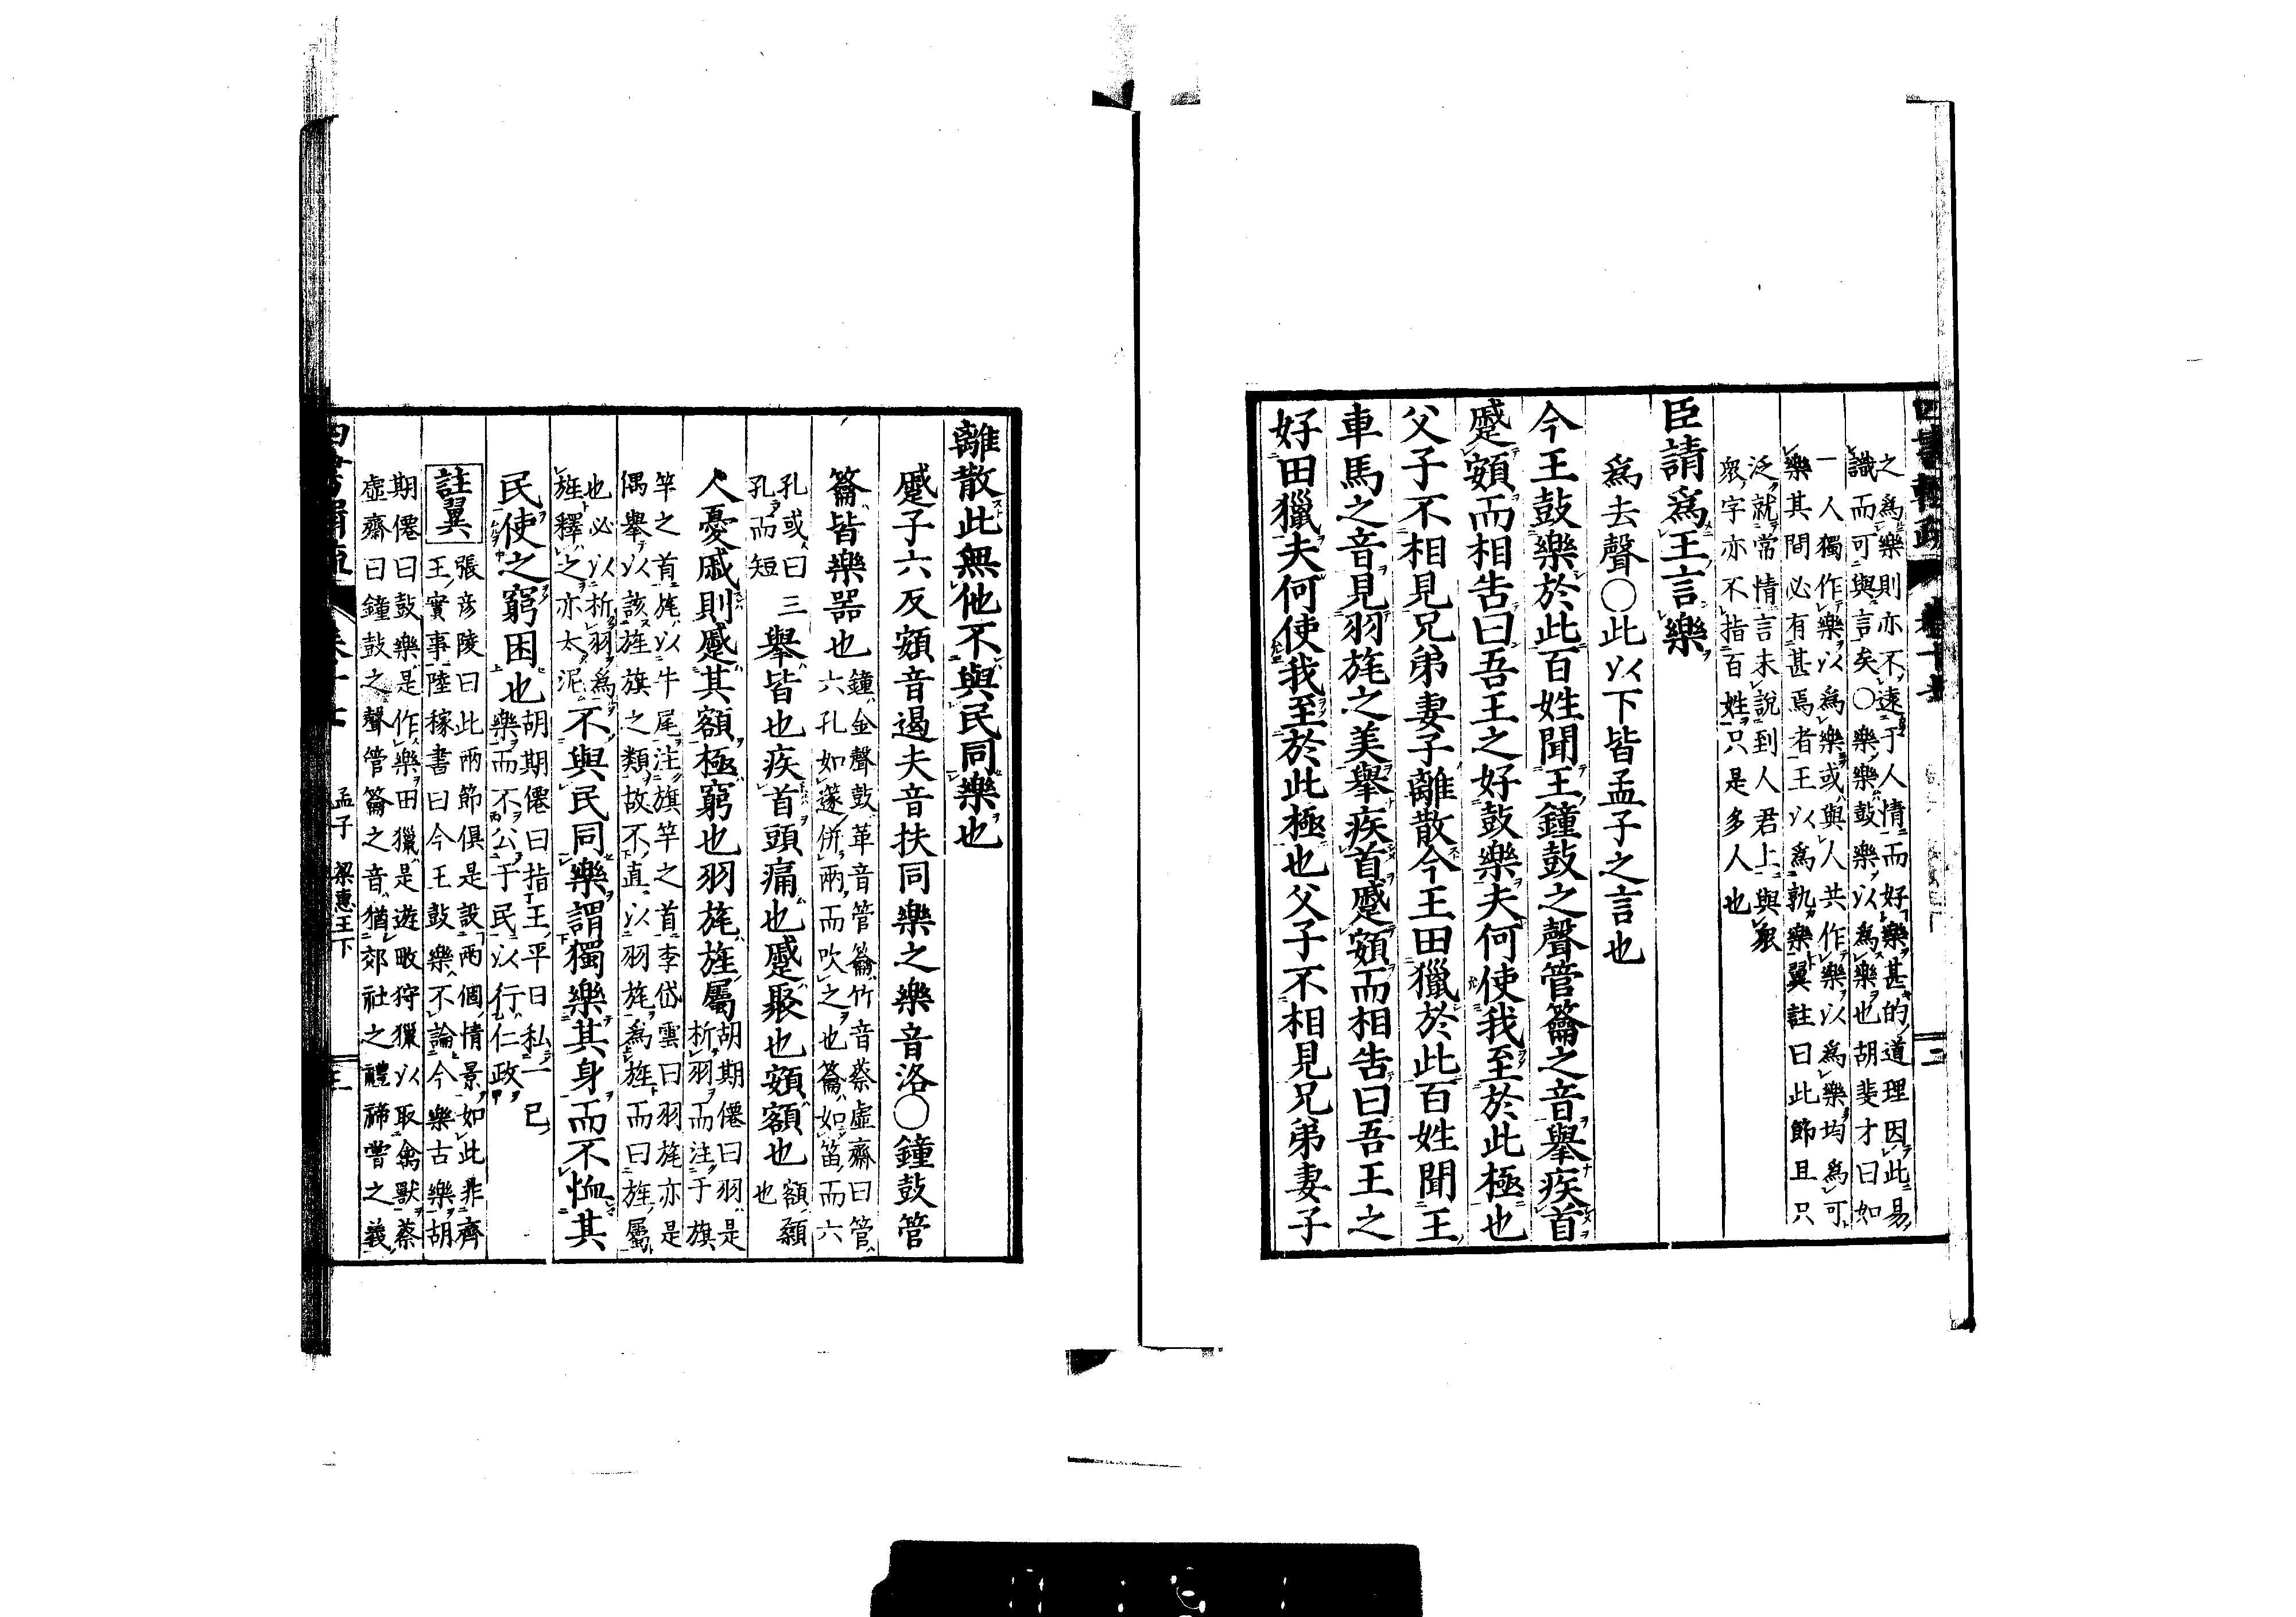 之爲樂則亦不遠于人情而好樂甚的道理因此易
識而可與言矣〇樂樂鼓樂以爲樂也胡斐才曰如
一人獨作樂以爲樂或與人共作樂以爲樂均爲可
樂其間必有甚焉者王以爲孰樂翼註曰此節且只
泛就常情言未說到人君上與衆
衆字亦不指百姓只是多人也
臣請爲王言樂
爲去聲〇此以下皆孟子之言也
今王鼓樂於此百姓聞王鐘鼓之聲管籥之音舉疾首
蹙頞而相告曰吾王之好鼓樂夫何使我至於此極也
父子不相見兄弟妻子離散今王田獵於此百姓聞王
車馬之音見羽旄之美舉疾首蹙頞而相告曰吾王之
好田獵夫何使我至於此極也父子不相見兄弟妻子
離散此無他不與民同樂也
蹙子六反頞音遏夫音扶同樂之樂音洛〇鐘鼓管
籥皆樂器也
鐘金聲鼓革音管籥竹音蔡虛齋曰管
六孔如篴併兩而吹之也籥如笛而六
孔或曰三
孔而短
舉皆也疾首頭痛也蹙聚也頞額也
額顙
也
人憂戚則蹙其額極窮也羽旄旌屬
胡期僊曰羽是
析羽而注于旗
竿之首旄以牛尾注旗竿之首李岱雲曰羽旄亦是
偶舉以該旌旗之類故不直以羽旄爲旌而曰旌屬
也必以析羽爲
旌釋之亦太泥
不與民同樂謂獨樂其身而不恤其
民使之窮困也
胡期僊曰指王平日私一己
樂而不公于民以行仁政
註翼
張彦陵曰此兩節俱是設兩個情景如此非齊
王實事陸稼書曰今王鼓樂不論今樂古樂胡
期僊曰鼓樂是作樂田獵是遊畋狩獵以取禽獸蔡
虛齋曰鐘鼓之聲管籥之音猶郊社之禮禘嘗之義
孟子
梁惠王下